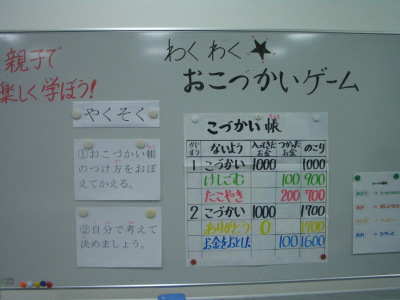 親子で
楽しく学ぼう!
わくわく★
おこづかいゲーム
やくそく
①おこづかい帳
のつけ方をおぼ
えてかえる。
②自分で考えて
決めましょう。
こづかい帳
ないよう 入ってきたお金 つかったお金 のこり
1 こづかい 1000 1000
けしごむ 100 900
たこやき 200 700
2 こづかい 1000 1700
ありがとう 0 1700
お金をおとした 100 1600